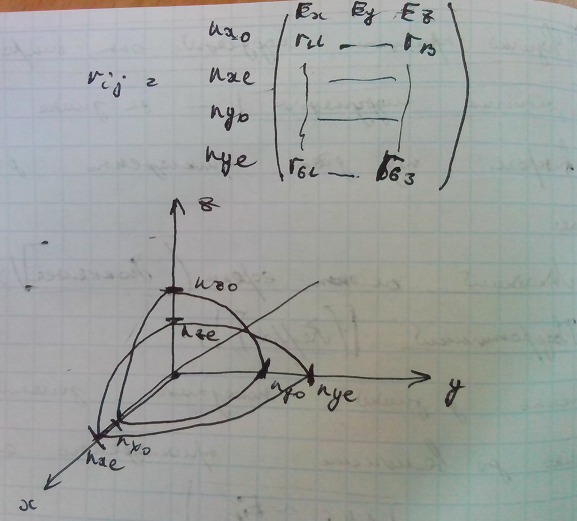 Ex Ey Ez
nxo r11 — r13
rij = nxe
nyo
nye r61 — r63
z
nzo
nze
nyo nye y
nxo
nxe
x